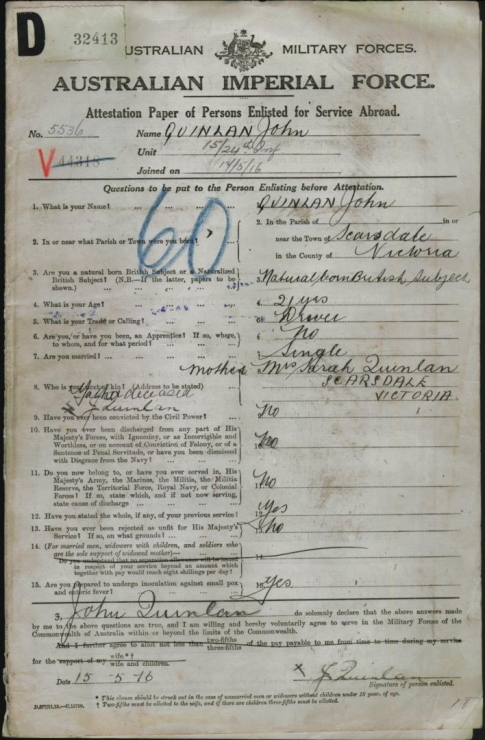 D 32413
AUSTRALIAN MILITARY FORCES.
AUSTRALIAN IMPERIAL FORCE.
Attestation Paper of Persons Enlisted for Service Abroad.
No. 5536 Name QUINLAN John
Unit 15/24th Inf
V 44318 Joined on 14/5/16
Questions to be put to the Person Enlisting before Attestation.
60
1. What is your Name? ... ... ... ... QUINLAN John
2. In or near what Parish or Town were you born? 2. In the Parish of in or
near the Town of Scarsdale
in the County of Victoria
3. Are you a natural born British Subject or a Naturalized
British Subject? (N.B.—If the latter, papers to be
shown.) ... 3. Natural born British Subject
4. What is your Age? ... ... 4. 21 yrs
5. What is your Trade or Calling? ... 5. Driver
6. Are you, or have you been, an Apprentice? If so, where,
to whom, and for what period? ... 6. No
7. Are you married? ... ... 7. Single
8. Who is your next of kin? (Address to be stated) mother Mrs Sarah Quinlan
Father deceased SCARSDALE
J Quinlan VICTORIA
9. Have you ever been convicted by the Civil Power? No
10. Have you ever been discharged from any part of His
Majesty's Forces, with Ignominy, or as Incorrigible and
Worthless, or on account of Conviction of Felony, or of a
Sentence of Penal Servitude, or have you been dismissed
with Disgrace from the Navy? ... 10. No
11. Do you now belong to, or have you ever served in, His
Majesty's Army, the Marines, the Militia, the Militia
Reserve, the Territorial Force, Royal Navy, or Colonial
Forces? If so, state which, and if not now serving,
state cause of discharge ... 11. No
12. Have you stated the whole, if any, of your previous service? 12. Yes
13. Have you ever been rejected as unfit for His Majesty's
Service? If so, on what grounds? ... No
14. (For married men, widowers with children, and soldiers who
are the sole support of widowed mother)—
Do you understand that no separation allowance will be issued
in respect of your service beyond an amount which
together with pay would reach eight shillings per day? 14.
15. Are you prepared to undergo inoculation against small pox
and enteric fever? 15. Yes
I, John Quinlan do solemnly declare that the above answers made
by me to the above questions are true, and I am willing and hereby voluntarily agree to serve in the Military Forces of the
Commonwealth of Australia within or beyond the limits of the Commonwealth.
And I further agree to allot not less than two-fifths three-fifths of the pay payable to me from time to time during my service
for the support of my wife.*† wife and children.
Date 15-5-16 x J Quinlan
Signature of person enlisted.
* This clause should be struck out in the case of unmarried men or widowers without children under 18 years of age.
† Two-fifths must be allotted to the wife, and if there are children three-fifths must be allotted.